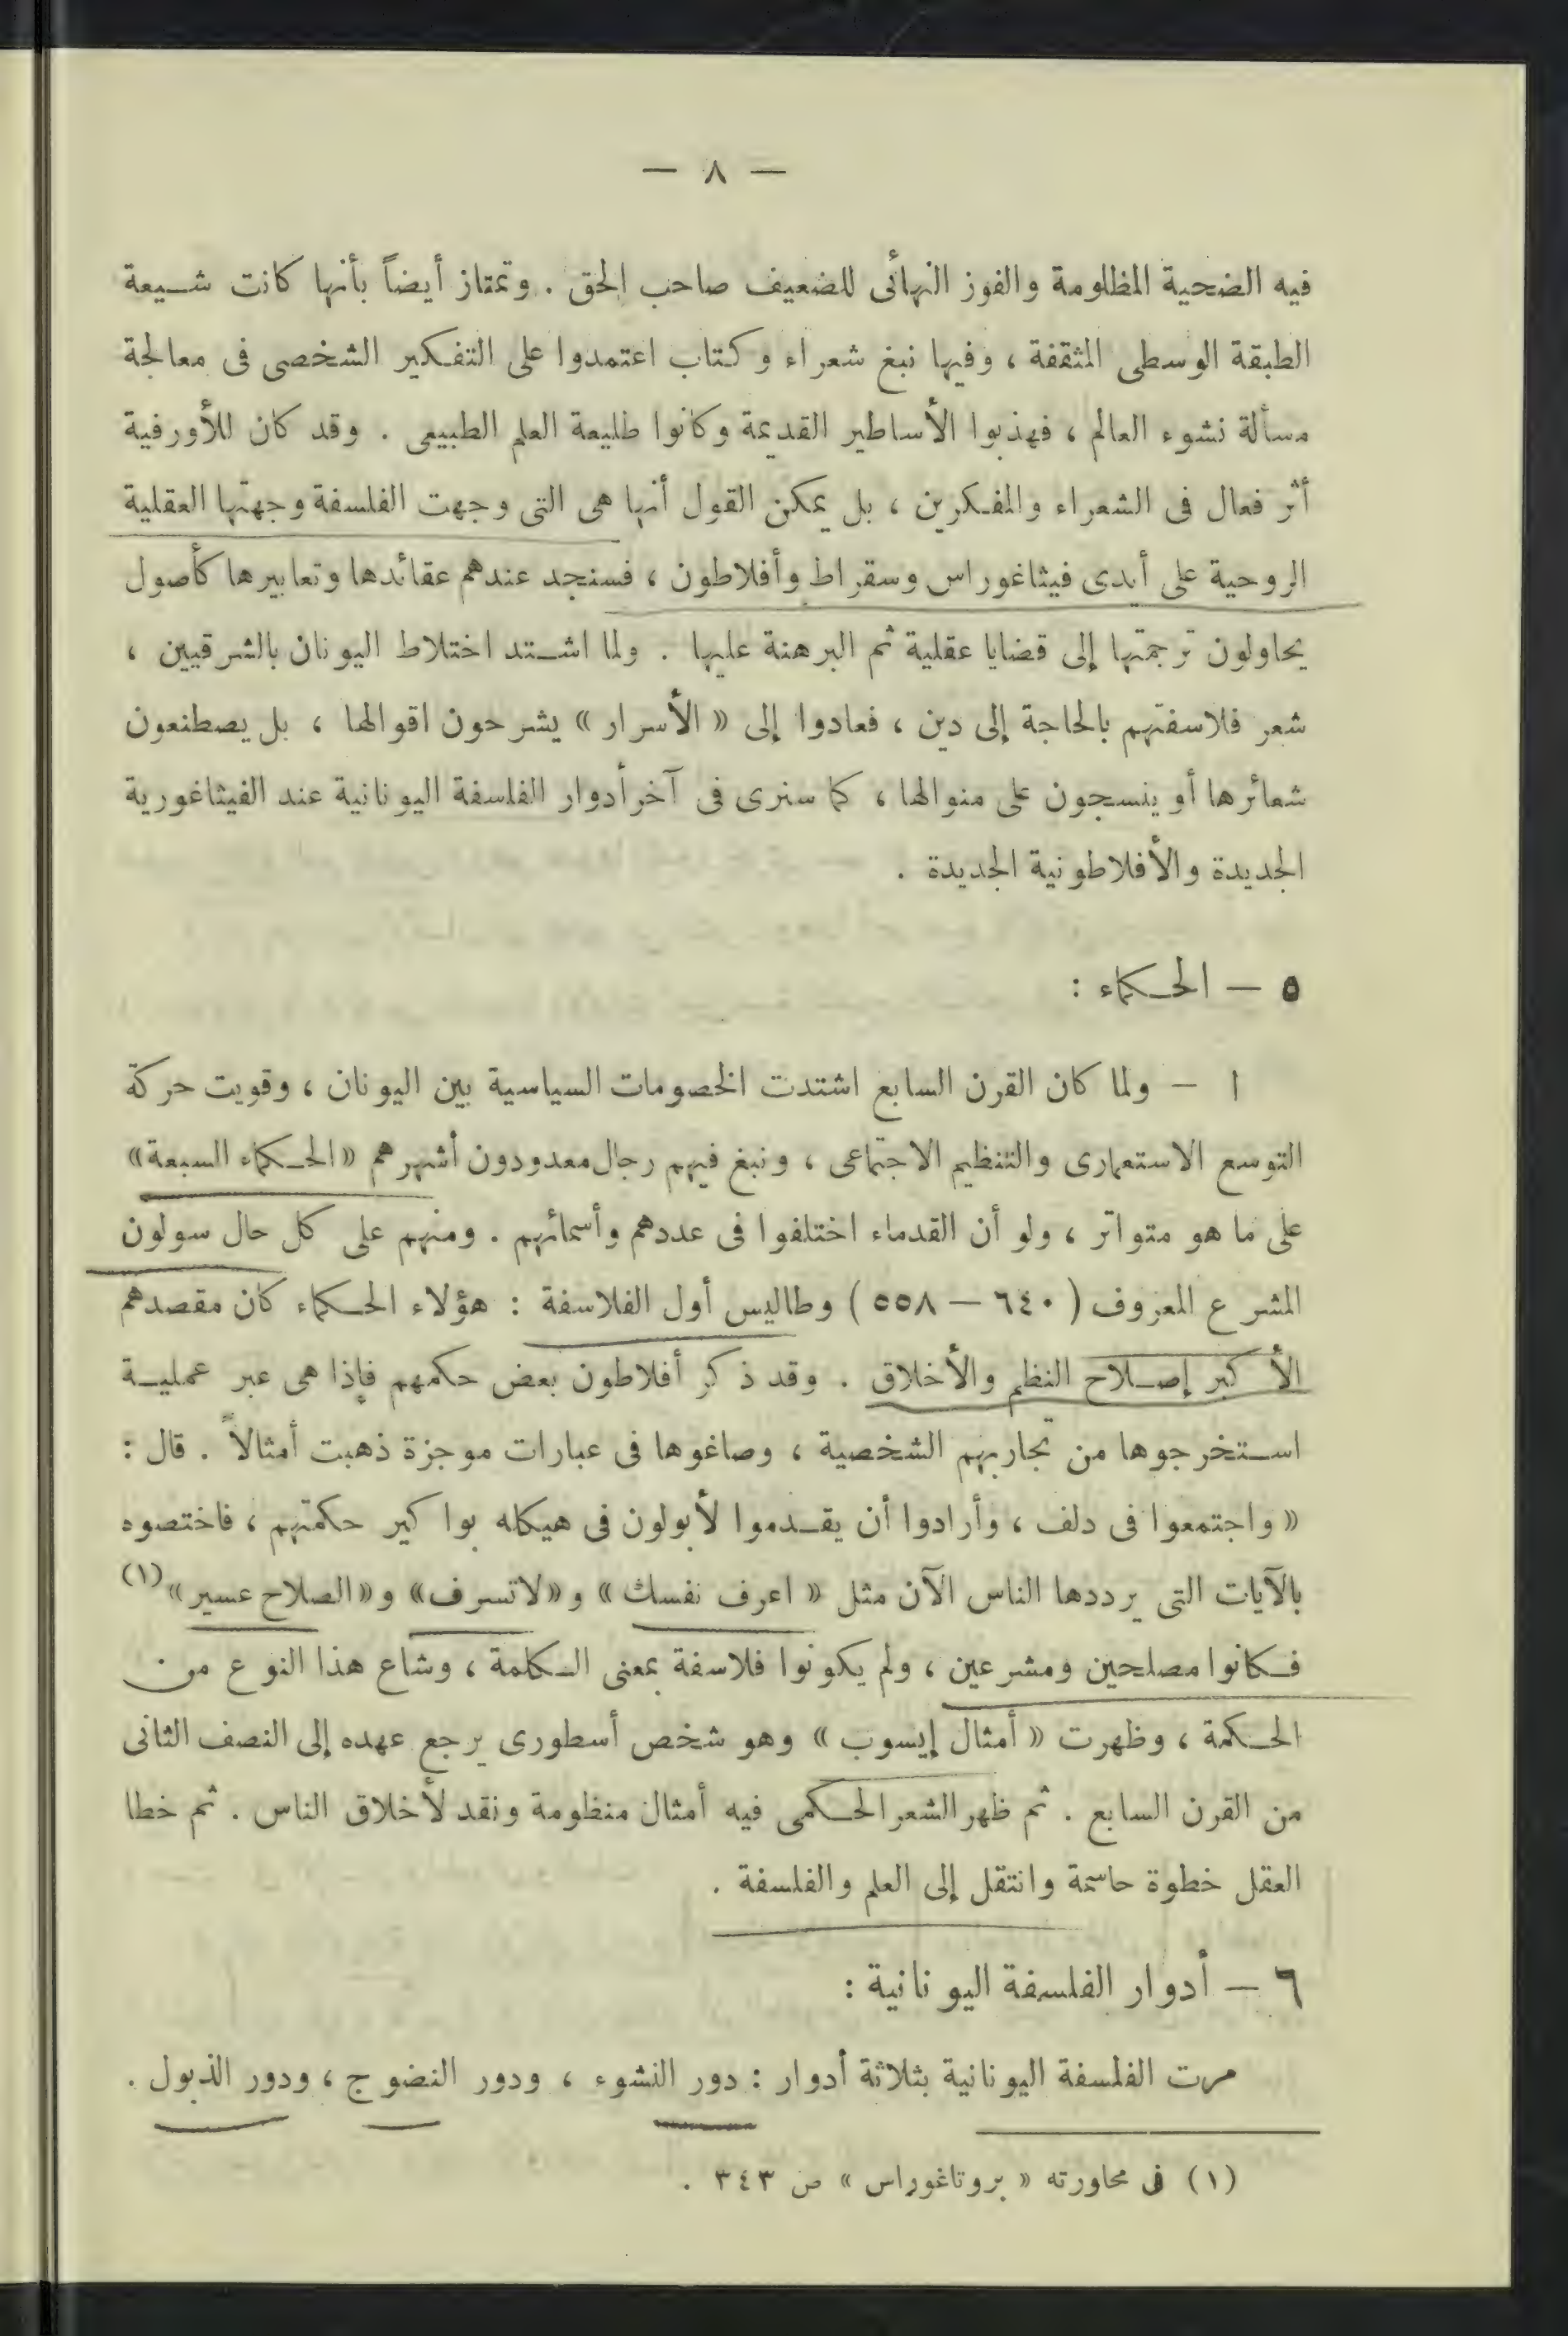 — ٨ —
فيه الضحية المظلومة والفوز النهائى للضعيف صاحب الحق . وتمتاز أيضاً بأنها كانت شيعة
الطبقة الوسطى المثقفة ، وفيها نبغ شعراء وكتاب اعتمدوا على التفكير الشخصى فى معالجة
مسألة نشوء العالم ، فهذبوا الأساطير القديمة وكانوا طليعة العلم الطبيعى . وقد كان للأورفية
أثر فعال فى الشعراء والمفكرين ، بل يمكن القول أنها هى التى وجهت الفلسفة وجهتها العقلية
الروحية على أيدى فيثاغوراس وسقراط وأفلاطون ، فسنجد عندهم عقائدها وتعابيرها كأصول
يحاولون ترجمتها إلى قضايا عقلية ثم البرهنة عليها . ولما اشتد اختلاط اليونان بالشرقيين ،
شعر فلاسفتهم بالحاجة إلى دين ، فعادوا إلى « الأسرار » يشرحون اقوالها ، بل يصطنعون
شعائرها أو ينسجون على منوالها ، كما سنرى فى آخر أدوار الفلسفة اليونانية عند الفيثاغورية
الجديدة والأفلاطونية الجديدة .
٥ — الحكماء :
ا — ولما كان القرن السابع اشتدت الخصومات السياسية بين اليونان ، وقويت حركة
التوسع الاستعمارى والتنظيم الاجتماعى ، ونبغ فيهم رجال معدودون أشهرهم « الحكماء السبعة »
على ما هو متواتر ، ولو أن القدماء اختلفوا فى عددهم وأسمائهم . ومنهم على كل حال سولون
المشرع المعروف ( ٦٤٠ — ٥٥٨ ) وطاليس أول الفلاسفة : هؤلاء الحكماء كان مقصدهم
الأكبر إصلاح النظم والأخلاق . وقد ذكر أفلاطون بعض حكمهم فإذا هى عبر عملية
استخرجوها من تجاربهم الشخصية ، وصاغوها فى عبارات موجزة ذهبت أمثالاً . قال :
« واجتمعوا فى دلف ، وأرادوا أن يقدموا لأبولون فى هيكله بواكير حكمتهم ، فاختصوه
بالآيات التى يرددها الناس الآن مثل « اعرف نفسك » و « لا تسرف » و « الصلاح عسير » (١)
فكانوا مصلحين ومشرعين ، ولم يكونوا فلاسفة بمعنى الكلمة ، وشاع هذا النوع من
الحكمة ، وظهرت « أمثال إيسوب » وهو شخص أسطورى يرجع عهده إلى النصف الثانى
من القرن السابع . ثم ظهر الشعر الحكمى فيه أمثال منظومة ونقد لأخلاق الناس . ثم خطا
العقل خطوة حاسمة وانتقل إلى العلم والفلسفة .
٦ — أدوار الفلسفة اليونانية :
مرت الفلسفة اليونانية بثلاثة أدوار : دور النشوء ، ودور النضوج ، ودور الذبول .
(١) فى محاورته « بروتاغوراس » ص ٣٤٣ .